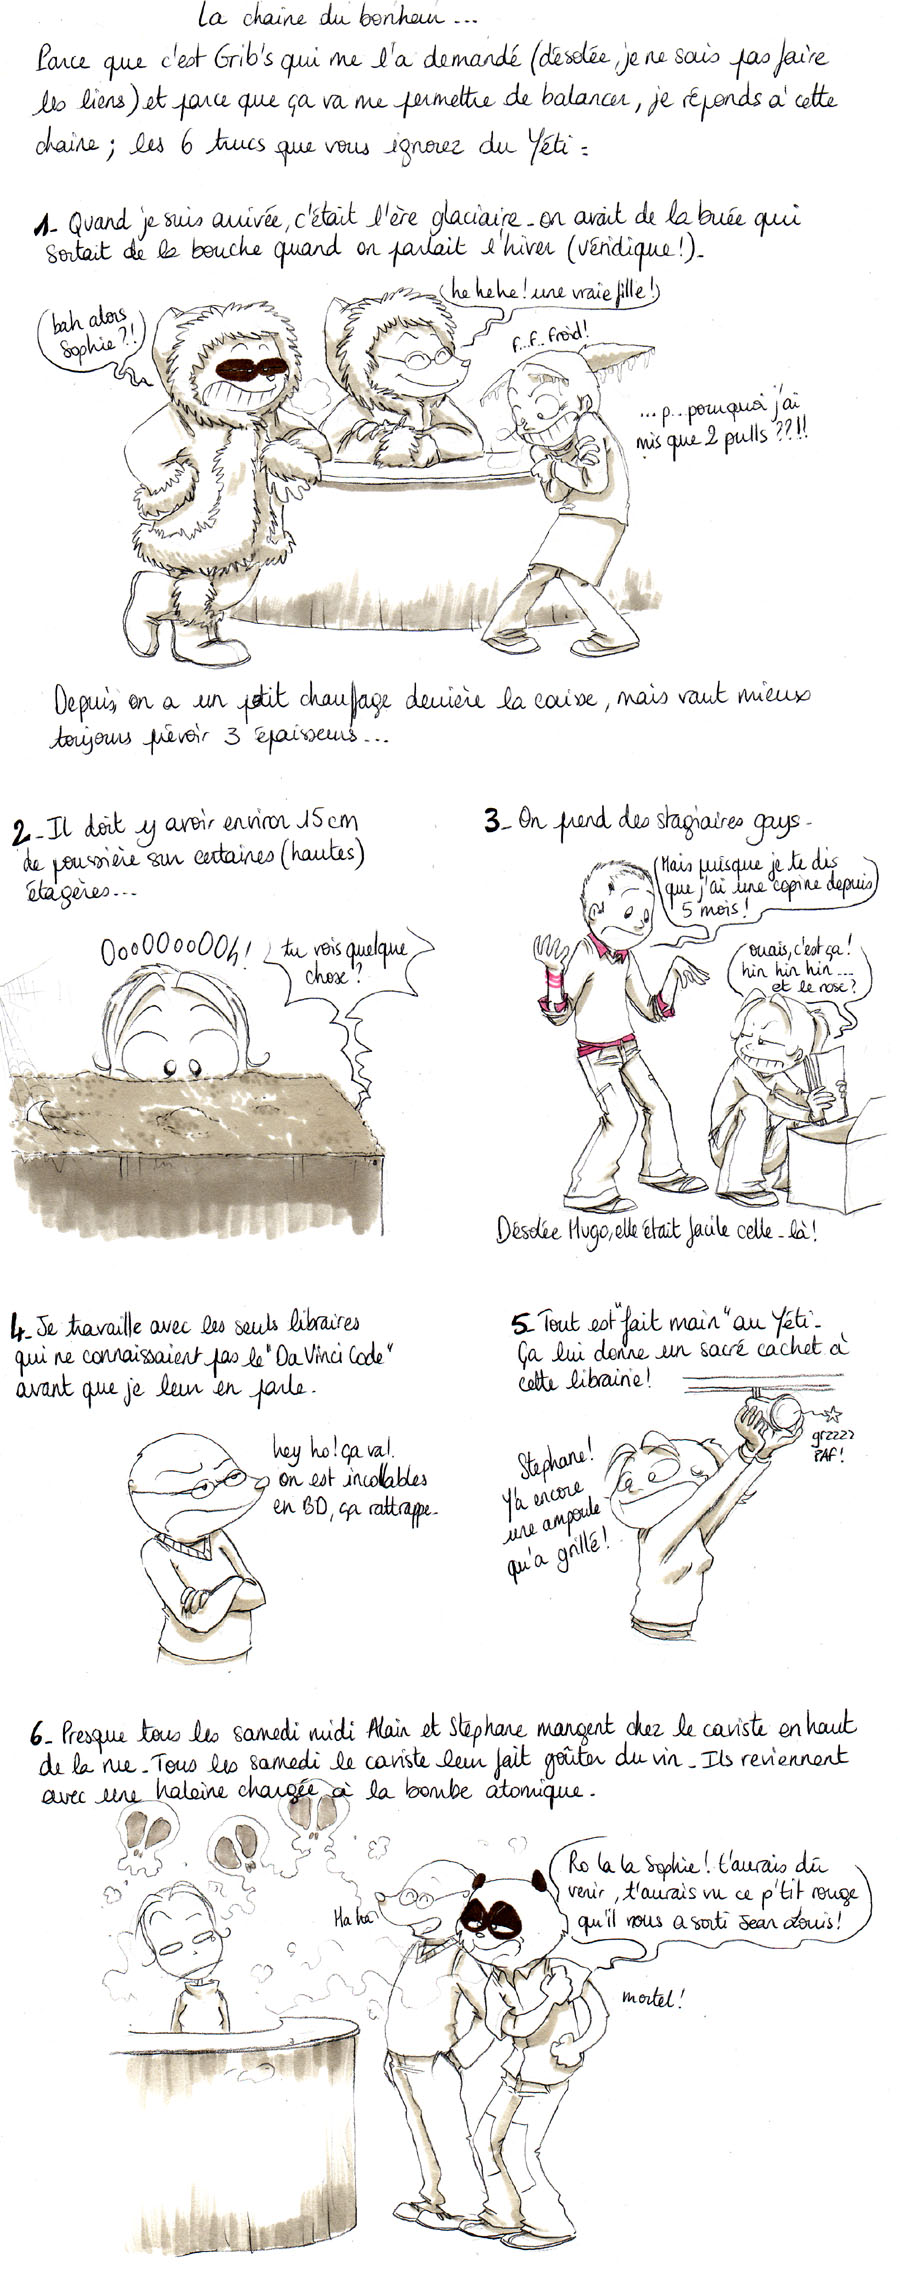 La chaine du bonheur...
Parce que c'est Grib's qui me l'a demandé (désolée, je ne sais pas faire
les liens) et parce que ça va me permettre de balancer, je réponds à cette
chaine ; les 6 trucs que vous ignorez du Yéti :
1_ Quand je suis arrivée, c'était l'ère glaciaire_ on avait de la buée qui
sortait de la bouche quand on parlait l'hiver (véridique!)_
bah alors
Sophie?!
he hehe! une vraie fille!
f..f..froid!
...p..pourquoi j'ai
mis que 2 pulls ??!!
Depuis, on a un ptit chauffage derrière la caisse, mais vaut mieux
toujours prévoir 3 épaisseurs...
2_ Il doit y avoir environ 15 cm
de poussière sur certaines (hautes)
étagères...
OooOOooOOh!
tu vois quelque
chose?
3_ On prend des stagiaires gays_
Mais puisque je te dis
que j'ai une copine depuis
5 mois!
ouais, c'est ça!
hin hin hin...
et le rose?
Désolée Hugo, elle était facile celle-là!
4_ Je travaille avec les seuls libraires
qui ne connaissaient pas le "Da Vinci Code"
avant que je leur en parle.
hey ho! ça va!
on est incollables
en BD, ça rattrappe_
5_ Tout est "fait main" au Yéti_
Ça lui donne un sacré cachet à
cette librairie!
Stephane!
Y'a encore
une ampoule
qu'a grillé!
grzzzz
PAF!
6_ Presque tous les samedi midi Alain et Stéphane mangent chez le caviste en haut
de la rue_ Tous les samedi le caviste leur fait goûter du vin_ Ils reviennent
avec une haleine chargée à la bombe atomique_
Ha ha
Ro la la Sophie! t'aurais dû
venir, t'aurais vu ce p'tit rouge
qu'il nous a sorti Jean Louis!
mortel!